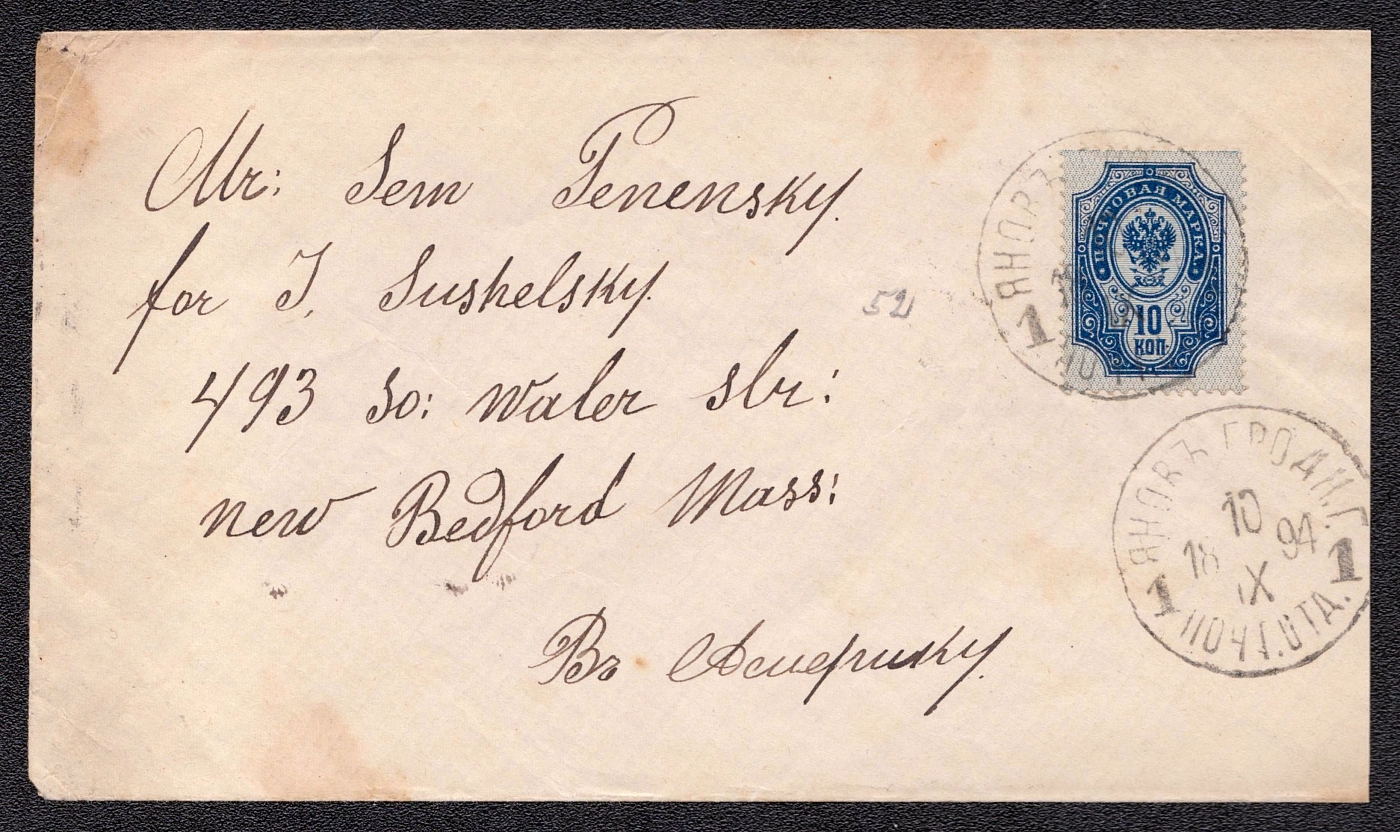 Mr: Sem Penensky.
for J. Sushelsky.
493 So: Water str:
new Bedford Mass:
Въ Америку.
52
ПОЧТОВАЯ МАРКА
10
КОП.
ЯНОВЪ
1
ЯНОВЪ ГРОДН.Г.
10
18 94
IX
1 1
ПОЧТ.ОТД.